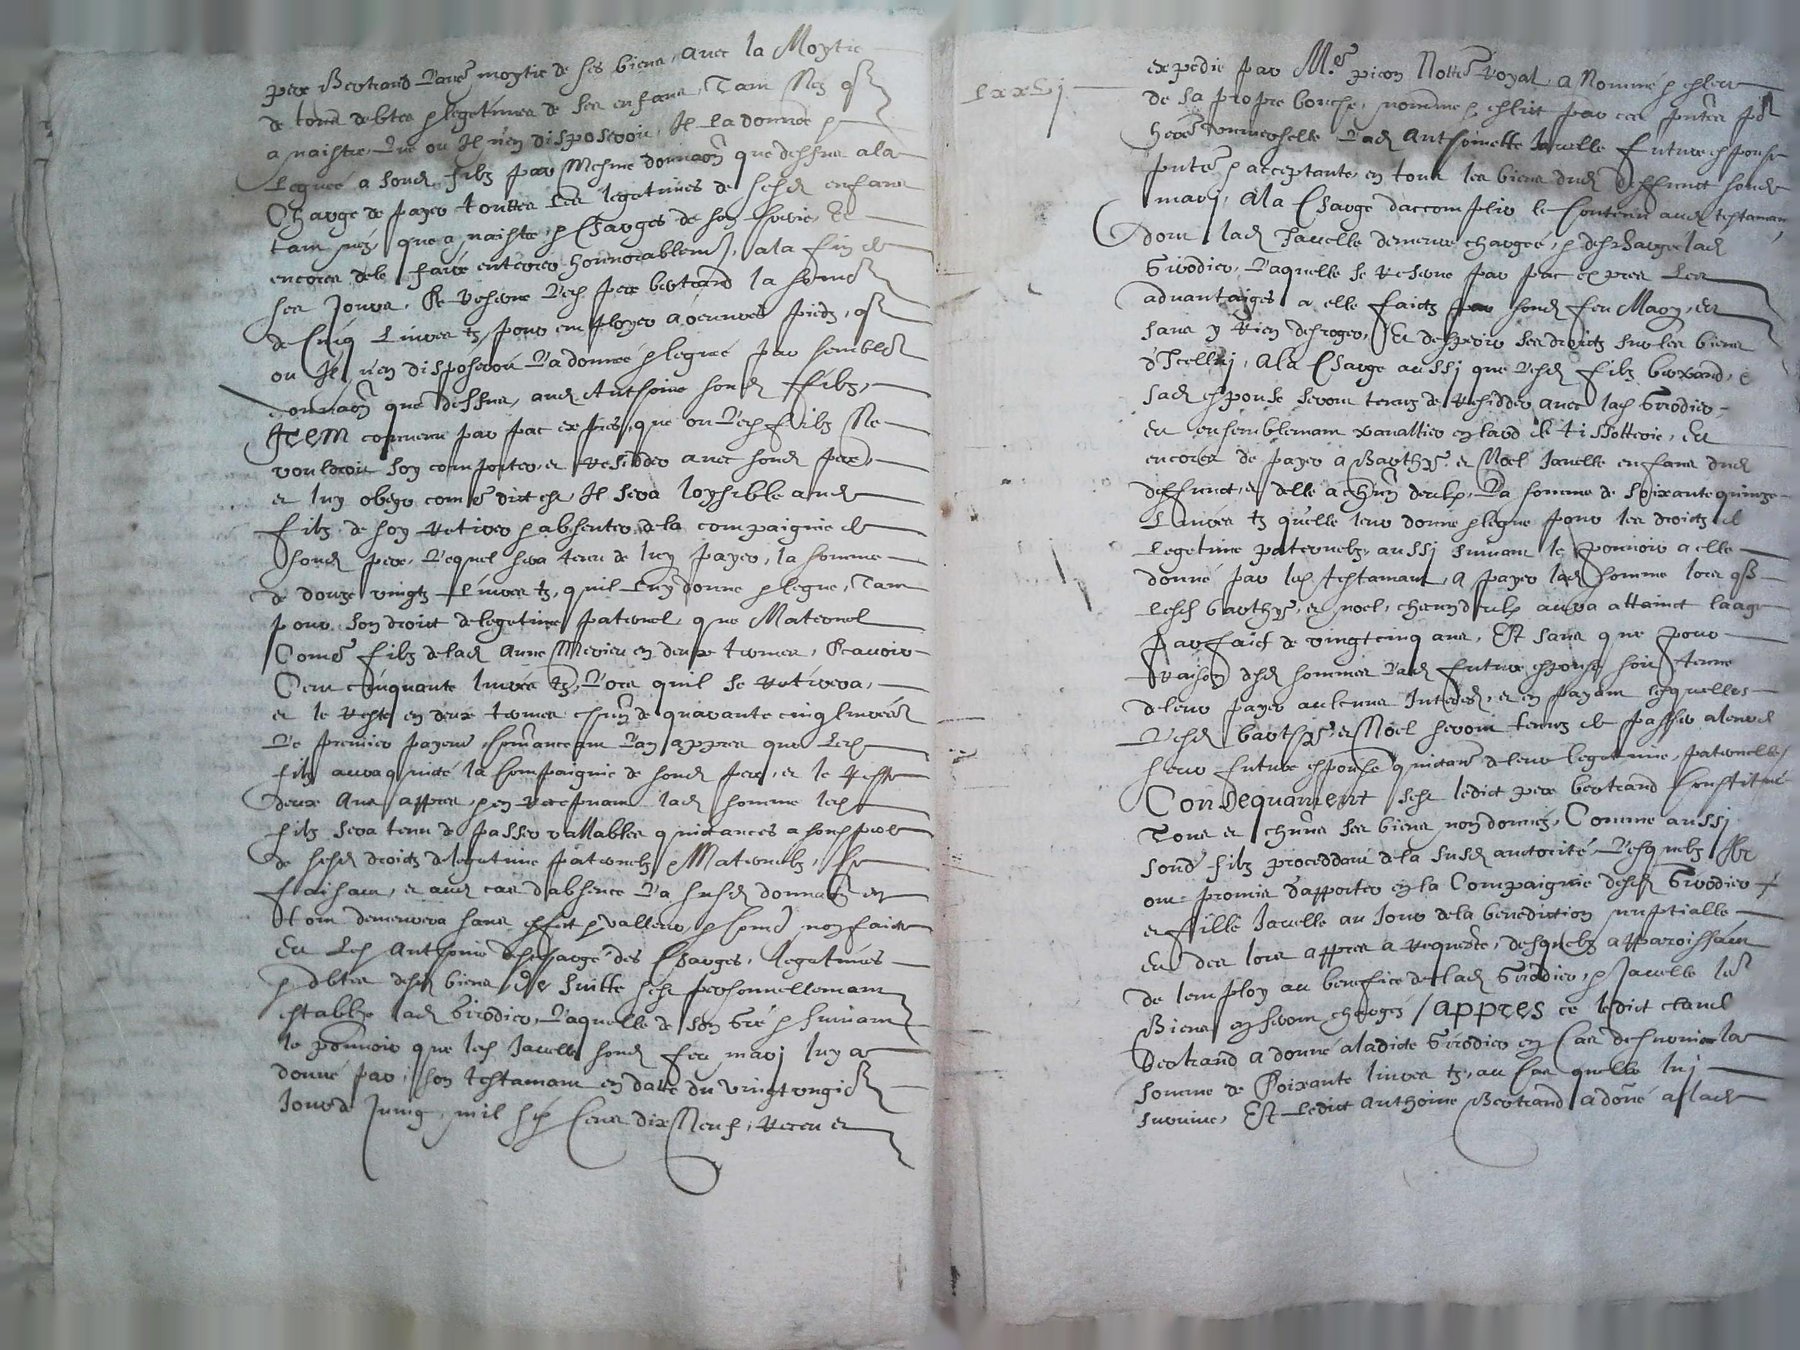 pere Bertrand L'autre moytie de ses biens, avec la Moytie
de tous debtes & legetimes de ses enfans, Tam Néz q
a naistre, Que ou Il n'en disposeroit, Il La donnée &
Leguée a sond. filz par Mesme donnaon que dessus a la
Charge de payer touttes Les legetimes de sesd. enfans
tam néz, que a naistre, & Charges de son hoirie, Et
encores de le faire enterrer honnorablemt, a la fin de
ses Jours, Se reserve Led. pere bertrand la somme
de Cinq Livres tz, pour employer a oeuvres piedz, q
ou Il n'en disposeroit L'a donnée & leguée par semblable
donnaon que dessus, aud. Anthoine sond. filz,
Item convenu par pac expres, que ou Led. filz Ne
vouldroit soy comporter, et Residder avec sond. pere,
et luy obeyr come dict est, Il sera loysible aud.
filz de soy Retirer & absenter de la compaignie de
sond. pere, Lequel sera tenu de luy payer, la somme
de douze vingtz Livres tz, qu'il Luy donne & legue, Tam
pour son droict de legetime paternel que Maternel
Come filz de lad. Anne Merieu en deux termes, Scavoir
Cent cinquante livres tz, Lors quil se Retirera,
et le Reste en deux termes chun de quarante cinq livres
Le premier payemt comanceant L'an appres que Led.
filz aura quicté la Compaignie de sond. pere, et le Reste
deux Ans appres, & en Recepvant lad. somme led.
filz sera tenu de passer vallables quictances a sond. pere
de sesd. droictz de legetime paternelz & Maternelz, Ce
faisant, et aud. cas d'absence La susd. donnaon
demeurera sans effect & valleur, & comme non faicte
Et Led. Anthoine deschargé des Charges, legetimes
& debtes desd. biens, De Suitte sest personnellemant
establye lad. Girodier, Laquelle de son Gré & suivant
le pouvoir que led. Javelle sond. feu mary luy a
donné par son testamant en datte du vingt ungie
Jour de Juing, mil six Cens dix Neuf, Receu et
Lxxvj
expedié par Me picon Notte Royal, a Nommé & esleu
de sa propre bouche, nomme & eslict par ces pntes po
here universelle Lad. Anthoinette Javelle future espouse
pnte & acceptante, en tous les biens dud. deffunct sond.
mary, A la Charge d'accomplir le Contenu aud. testamant,
dont lad. Javelle demeure chargée, & descharge lad.
Girodier, Laquelle se Reserve par pac expres Les
advantaiges a elle faictz par sond. feu Mary, Et
sans y Rien desroger, Et de ses droictz sur les biens
d'Icelluj, A la Charge aussj que Led. filz bertrand, &
sad. espouse seront tenuz de Residder avec lad. Girodier
et ensemblemant travallier en lard de tissotterie, Et
encores de payer a Barthy. et Noel Javelle enfans dud.
deffunct, et delle a chun deulx, La somme de Soixante quinze
Livres tz qu'elle leur donne & legue pour les droictz de
Legetime paternelz, aussj suivant le pouvoir a elle
donné par led. testamant, A payer lad. somme lors q
Lesd. barthy. et noel, chacun deulx aura attainct laage
parfaict de vingt cinq ans, Et sans que pour
Raison desd. sommes Lad. future espouse soit tenue
de leur payer aulcuns Interestz, et en payant lesquelles
Lesd. barthy. et Noel seront tenuz de passer a leurd.
seur future espouse quictance de leur legetime paternelle,
Consequament sest ledict pere bertrand Constitué
Tous et chuns ses biens non donnéz, Comme aussj
sond. filz proceddant de la susd. auctorité, Lesquelz se
ont promis d'apporter en la Compaignie desd. Girodier
et fille Javelle au Jour de la benediction nuptialle
Et des lors appres a Requeste, desquelz apparoissant
de lemploy au benefice de lad. Girodier, & Javelle les
Biens en seront chargés / appres ce ledict
Bertrand a donné a ladicte Girodier en Cas de survie la
somme de Soixante livres tz, au Cas quelle luj
survive, Et Ledict Anthoine Bertrand a doné a lad.